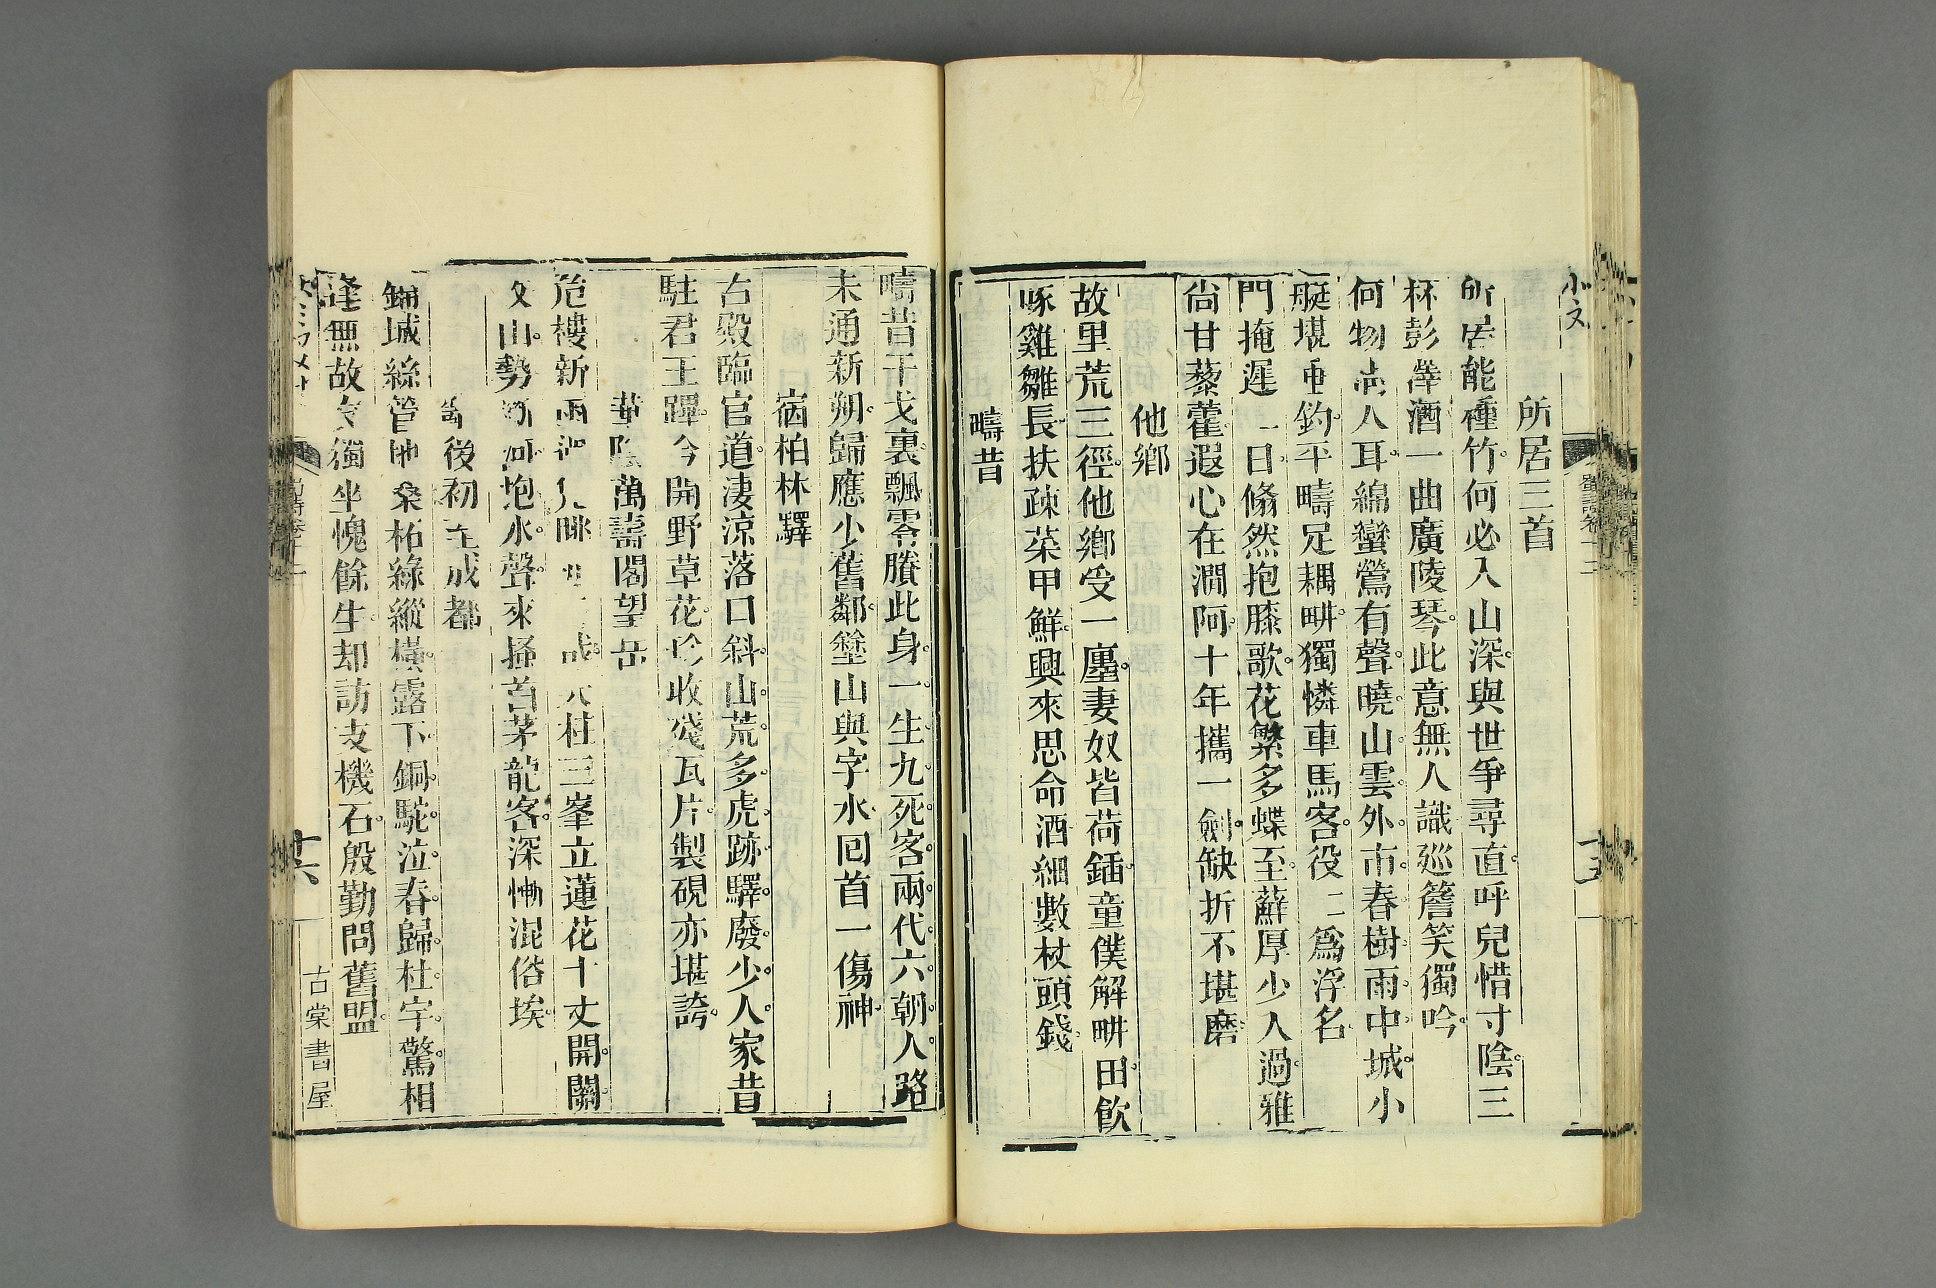 所居三首
所居能種竹何必入山深與世爭尋直呼兒惜寸陰三
杯彭澤酒一曲廣陵琴此意無人識巡簷笑獨吟
何物志人耳綿蠻鶯有聲曉山雲外市春樹雨中城小
艇堪垂釣平疇足耦畊獨憐車馬客役二爲浮名
門掩遲一日翛然抱膝歌花繁多蝶至蘚厚少人過雅
尙甘藜藿遐心在澗阿十年攜一劍缺折不堪磨
他鄉
故里荒三徑他鄉受一廛妻奴皆荷鍤童僕解畊田飮
啄雞雛長扶疎菜甲鮮興來思命酒細數杖頭錢
疇昔
疇昔干戈裏飄零賸此身一生九死客兩代六朝人路
未通新朔歸應少舊鄰鐢山與字水回首一傷神
宿柏林驛
古殿臨官道淒涼落口斜山荒多虎跡驛廢少人家昔
駐君王蹕今開野草花收殘瓦片製硯亦堪誇
華陰萬壽閣望岳
危樓新雨 眺 柱三峯立蓮花十丈開關
山勢 河抱水聲來搔首茅龍客深慚混俗埃
後初至成都
錦城絲管 桑柘綠縱橫露下銅駝泣春歸杜宇驚相
逢無故 獨坐愧餘生却訪支機石殷勤問舊盟
十六
古棠書屋